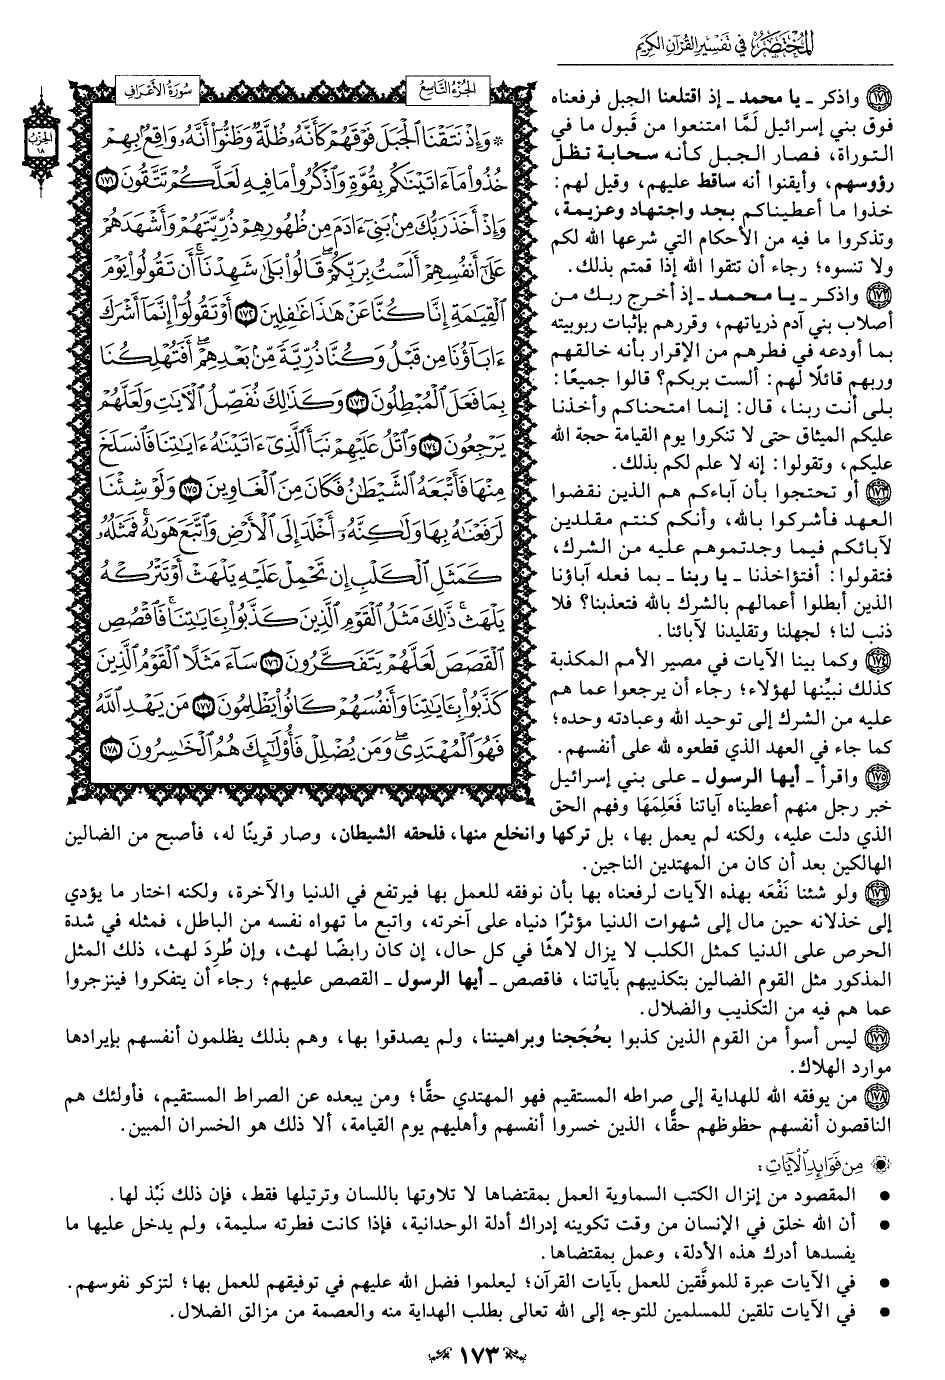 المختصر في تفسير القرآن الكريم
الجزء التاسع
سورة الأعراف
الحزب
١٨
* وَإِذْ نَتَقْنَا ٱلْجَبَلَ فَوْقَهُمْ كَأَنَّهُۥ ظُلَّةٌ وَظَنُّوٓا۟ أَنَّهُۥ وَاقِعٌۢ بِهِمْ
خُذُوا۟ مَآ ءَاتَيْنَٰكُم بِقُوَّةٍ وَٱذْكُرُوا۟ مَا فِيهِ لَعَلَّكُمْ تَتَّقُونَ ١٧١
وَإِذْ أَخَذَ رَبُّكَ مِنۢ بَنِىٓ ءَادَمَ مِن ظُهُورِهِمْ ذُرِّيَّتَهُمْ وَأَشْهَدَهُمْ
عَلَىٰٓ أَنفُسِهِمْ أَلَسْتُ بِرَبِّكُمْ ۖ قَالُوا۟ بَلَىٰ شَهِدْنَآ ۛ أَن تَقُولُوا۟ يَوْمَ
ٱلْقِيَٰمَةِ إِنَّا كُنَّا عَنْ هَٰذَا غَٰفِلِينَ ١٧٢ أَوْ تَقُولُوٓا۟ إِنَّمَآ أَشْرَكَ
ءَابَآؤُنَا مِن قَبْلُ وَكُنَّا ذُرِّيَّةً مِّنۢ بَعْدِهِمْ ۖ أَفَتُهْلِكُنَا
بِمَا فَعَلَ ٱلْمُبْطِلُونَ ١٧٣ وَكَذَٰلِكَ نُفَصِّلُ ٱلْءَايَٰتِ وَلَعَلَّهُمْ
يَرْجِعُونَ ١٧٤ وَٱتْلُ عَلَيْهِمْ نَبَأَ ٱلَّذِىٓ ءَاتَيْنَٰهُ ءَايَٰتِنَا فَٱنسَلَخَ
مِنْهَا فَأَتْبَعَهُ ٱلشَّيْطَٰنُ فَكَانَ مِنَ ٱلْغَاوِينَ ١٧٥ وَلَوْ شِئْنَا
لَرَفَعْنَٰهُ بِهَا وَلَٰكِنَّهُۥٓ أَخْلَدَ إِلَى ٱلْأَرْضِ وَٱتَّبَعَ هَوَىٰهُ ۚ فَمَثَلُهُۥ
كَمَثَلِ ٱلْكَلْبِ إِن تَحْمِلْ عَلَيْهِ يَلْهَثْ أَوْ تَتْرُكْهُ
يَلْهَث ۚ ذَّٰلِكَ مَثَلُ ٱلْقَوْمِ ٱلَّذِينَ كَذَّبُوا۟ بِـَٔايَٰتِنَا ۚ فَٱقْصُصِ
ٱلْقَصَصَ لَعَلَّهُمْ يَتَفَكَّرُونَ ١٧٦ سَآءَ مَثَلًا ٱلْقَوْمُ ٱلَّذِينَ
كَذَّبُوا۟ بِـَٔايَٰتِنَا وَأَنفُسَهُمْ كَانُوا۟ يَظْلِمُونَ ١٧٧ مَن يَهْدِ ٱللَّهُ
فَهُوَ ٱلْمُهْتَدِى ۖ وَمَن يُضْلِلْ فَأُو۟لَٰٓئِكَ هُمُ ٱلْخَٰسِرُونَ ١٧٨
١٧١ واذكر ـ يا محمد ـ إذ اقتلعنا الجبل فرفعناه
فوق بني إسرائيل لَمَّا امتنعوا من قَبول ما في
التوراة، فصار الجبل كأنه سحابة تظل
رؤوسهم، وأيقنوا أنه ساقط عليهم، وقيل لهم:
خذوا ما أعطيناكم بجد واجتهاد وعزيمة،
وتذكروا ما فيه من الأحكام التي شرعها الله لكم
ولا تنسوه؛ رجاء أن تتقوا الله إذا قمتم بذلك.
١٧٢ واذكر ـ يا محمد ـ إذ أخرج ربك من
أصلاب بني آدم ذرياتهم، وقررهم بإثبات ربوبيته
بما أودعه في فطرهم من الإقرار بأنه خالقهم
وربهم قائلًا لهم: ألست بربكم؟ قالوا جميعًا:
بلى أنت ربنا، قال: إنما امتحناكم وأخذنا
عليكم الميثاق حتى لا تنكروا يوم القيامة حجة الله
عليكم، وتقولوا: إنه لا علم لكم بذلك.
١٧٣ أو تحتجوا بأن آباءكم هم الذين نقضوا
العهد فأشركوا بالله، وأنكم كنتم مقلدين
لآبائكم فيما وجدتموهم عليه من الشرك،
فتقولوا: أفتؤاخذنا ـ يا ربنا ـ بما فعله آباؤنا
الذين أبطلوا أعمالهم بالشرك بالله فتعذبنا؟ فلا
ذنب لنا؛ لجهلنا وتقليدنا لآبائنا.
١٧٤ وكما بينا الآيات في مصير الأمم المكذبة
كذلك نبيِّنها لهؤلاء؛ رجاء أن يرجعوا عما هم
عليه من الشرك إلى توحيد الله وعبادته وحده؛
كما جاء في العهد الذي قطعوه لله على أنفسهم.
١٧٥ واقرأ ـ أيها الرسول ـ على بني إسرائيل
خبر رجل منهم أعطيناه آياتنا فَعَلِمَهَا وفهم الحق
الذي دلت عليه، ولكنه لم يعمل بها، بل تركها وانخلع منها، فلحقه الشيطان، وصار قرينًا له، فأصبح من الضالين
الهالكين بعد أن كان من المهتدين الناجين.
١٧٦ ولو شئنا نَفْعَه بهذه الآيات لرفعناه بها بأن نوفقه للعمل بها فيرتفع في الدنيا والآخرة، ولكنه اختار ما يؤدي
إلى خذلانه حين مال إلى شهوات الدنيا مؤثرًا دنياه على آخرته، واتبع ما تهواه نفسه من الباطل، فمثله في شدة
الحرص على الدنيا كمثل الكلب لا يزال لاهثًا في كل حال، إن كان رابضًا لهث، وإن طُرِدَ لهث، ذلك المثل
المذكور مثل القوم الضالين بتكذيبهم بآياتنا، فاقصص ـ أيها الرسول ـ القصص عليهم؛ رجاء أن يتفكروا فينزجروا
عما هم فيه من التكذيب والضلال.
١٧٧ ليس أسوأ من القوم الذين كذبوا بحُجَجنا وبراهيننا، ولم يصدقوا بها، وهم بذلك يظلمون أنفسهم بإيرادها
موارد الهلاك.
١٧٨ من يوفقه الله للهداية إلى صراطه المستقيم فهو المهتدي حقًّا؛ ومن يبعده عن الصراط المستقيم، فأولئك هم
الناقصون أنفسهم حظوظهم حقًّا، الذين خسروا أنفسهم وأهليهم يوم القيامة، ألا ذلك هو الخسران المبين.
مِن فَوَائِدِ الْآيَاتِ:
• المقصود من إنزال الكتب السماوية العمل بمقتضاها لا تلاوتها باللسان وترتيلها فقط، فإن ذلك نَبْذ لها.
• أن الله خلق في الإنسان من وقت تكوينه إدراك أدلة الوحدانية، فإذا كانت فطرته سليمة، ولم يدخل عليها ما
يفسدها أدرك هذه الأدلة، وعمل بمقتضاها.
• في الآيات عبرة للموفَّقين للعمل بآيات القرآن؛ ليعلموا فضل الله عليهم في توفيقهم للعمل بها؛ لتزكو نفوسهم.
• في الآيات تلقين للمسلمين للتوجه إلى الله تعالى بطلب الهداية منه والعصمة من مزالق الضلال.
١٧٣